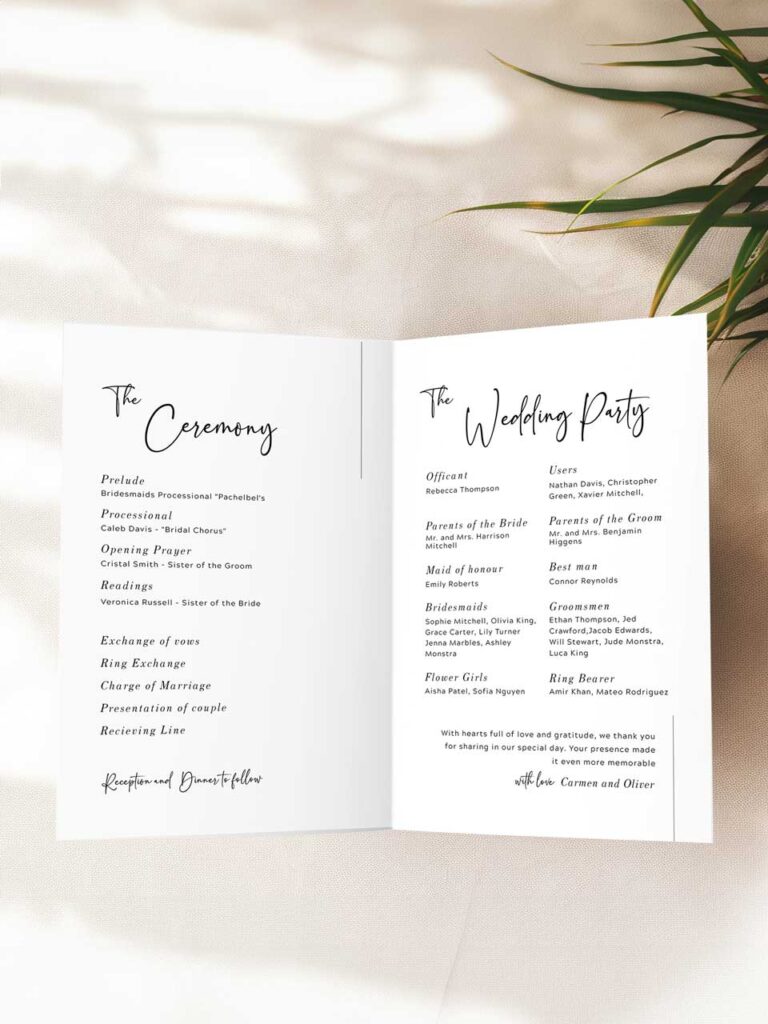 The
Ceremony
Prelude
Bridesmaids Processional "Pachelbel's
Processional
Caleb Davis - "Bridal Chorus"
Opening Prayer
Cristal Smith - Sister of the Groom
Readings
Veronica Russell - Sister of the Bride
Exchange of vows
Ring Exchange
Charge of Marriage
Presentation of couple
Recieving Line
Reception and Dinner to follow
The
Wedding Party
Officant
Rebecca Thompson
Users
Nathan Davis, Christopher
Green, Xavier Mitchell,
Parents of the Bride
Mr. and Mrs. Harrison
Mitchell
Parents of the Groom
Mr. and Mrs. Benjamin
Higgens
Maid of honour
Emily Roberts
Best man
Connor Reynolds
Bridesmaids
Sophie Mitchell, Olivia King,
Grace Carter, Lily Turner
Jenna Marbles, Ashley
Monstra
Groomsmen
Ethan Thompson, Jed
Crawford,Jacob Edwards,
Will Stewart, Jude Monstra,
Luca King
Flower Girls
Aisha Patel, Sofia Nguyen
Ring Bearer
Amir Khan, Mateo Rodriguez
With hearts full of love and gratitude, we thank you
for sharing in our special day. Your presence made
it even more memorable
with love Carmen and Oliver